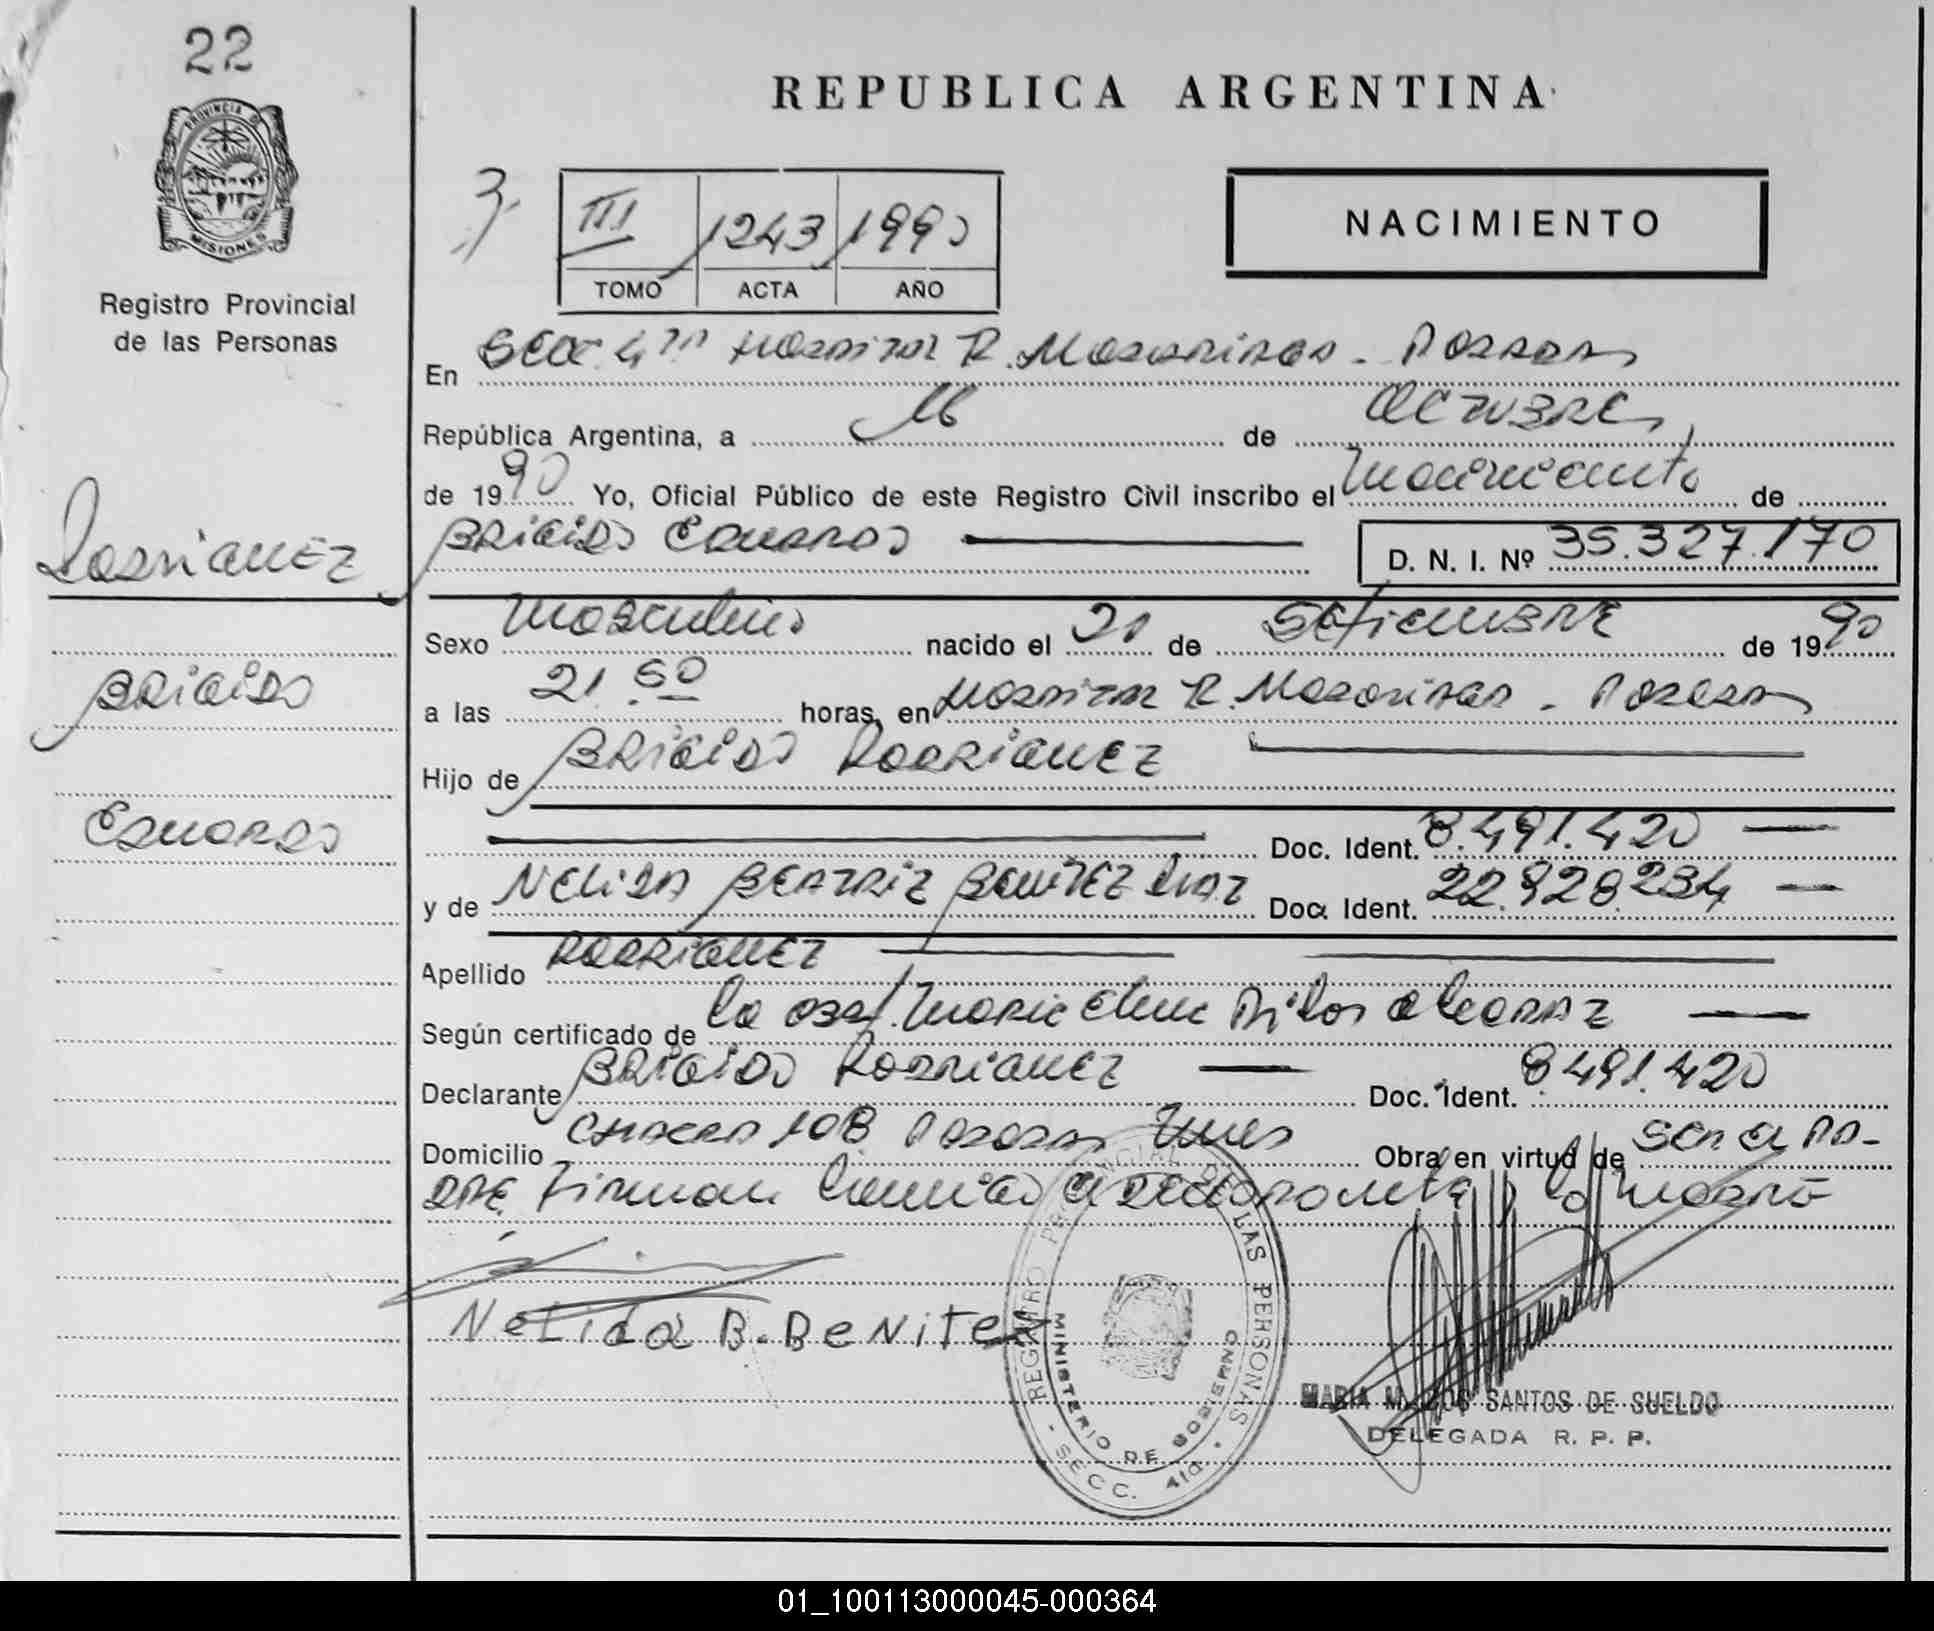 22
REPUBLICA ARGENTINA
PROVINCIA DE
MISIONES
Registro Provincial
de las Personas
III 1243 1990
TOMO ACTA AÑO
NACIMIENTO
En Secc 4ta Hospital R. Madariaga - Posadas
República Argentina, a 16 de Octubre
de 1990 Yo, Oficial Público de este Registro Civil inscribo el Nacimiento de
Rodriguez Brigido Eduardo D. N. I. Nº 35.327.170
Sexo Masculino nacido el de Setiembre de 1990
Brigido
a las 21.50 horas, en Hospital R. Madariaga - Posadas
Hijo de Brigido Rodriguez
Eduardo
Doc. Ident. 8.491.420
y de Nelida Beatriz Benitez Diaz Doc. Ident. 22.928.234
Apellido Rodriguez
Según certificado de la obst. Maria Alcaraz
Declarante Brigido Rodriguez Doc. Ident. 8491.420
Domicilio Chacra 108 Posadas Mnes Obra en virtud de ser el pa-
dre Firman la madre
Nelida B. Benitez
REGISTRO PROVINCIAL DE LAS PERSONAS
MINISTERIO DE GOBIERNO
SECC. 4ta.
MARIA M. DOS SANTOS DE SUELDO
DELEGADA R. P. P.
01_100113000045-000364